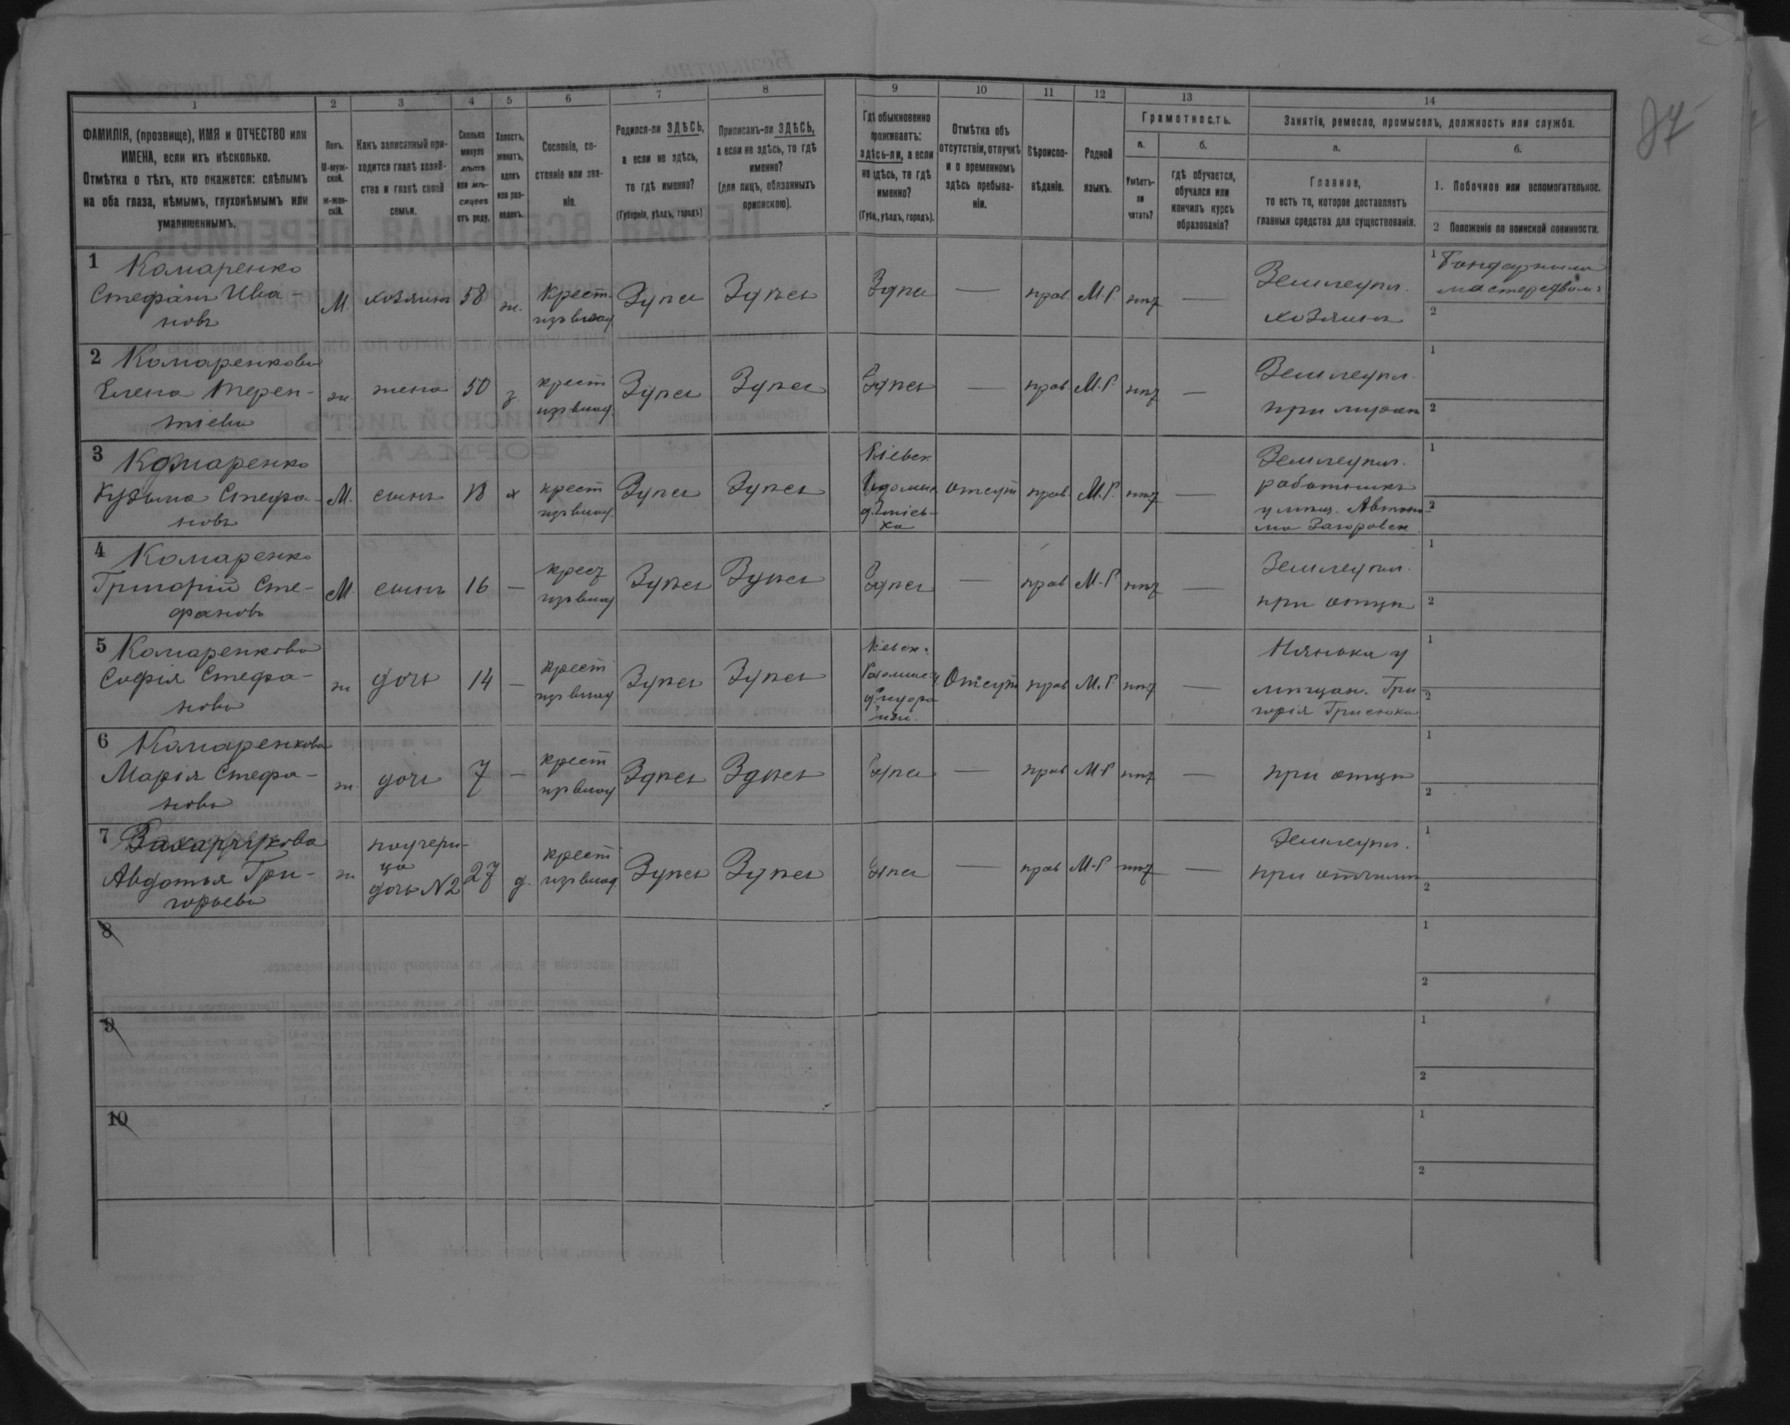 87
1 2 3 4 5 6 7 8 9 10 11 12 13 14
ФАМИЛІЯ, (прозвище), ИМЯ и ОТЧЕСТВО или
ИМЕНА, если ихъ нѣсколько.
Отмѣтка о тѣхъ, кто окажется: слѣпымъ
на оба глаза, нѣмымъ, глухонѣмымъ или
умалишеннымъ.
Полъ.
М-муж-
ской.
ж-жен-
скій.
Какъ записанный при-
ходится главѣ хозяй-
ства и главѣ своей
семьи.
Сколько
минуло
лѣтъ
или мѣ-
сяцевъ
отъ роду.
Холостъ,
женатъ,
вдовъ
или раз-
веденъ.
Сословіе, со-
стояніе или зва-
ніе.
Родился-ли ЗДѢСЬ,
а если не здѣсь,
то гдѣ именно?
(Губернія, уѣздъ, городъ)
Приписанъ-ли ЗДѢСЬ,
а если не здѣсь, то гдѣ
именно?
(для лицъ, обязанныхъ
припискою).
Гдѣ обыкновенно
проживаетъ:
здѣсь-ли, а если
не здѣсь, то гдѣ
именно?
(Губ., уѣздъ, городъ).
Отмѣтка объ
отсутствіи, отлучкѣ
и о временномъ
здѣсь пребыва-
ніи.
Вѣроиспо-
вѣданіе.
Родной
языкъ.
Грамотность.
а.
Умѣетъ-
ли
читать?
б.
гдѣ обучается,
обучался или
кончилъ курсъ
образованія?
Занятія, ремесло, промыселъ, должность или служба.
а.
Главное,
то есть то, которое доставляетъ
главныя средства для существованія.
б.
1. Побочное или вспомогательное.
2 Положеніе по воинской повинности.
1 Комаренко
Стефанъ Ива-
новъ
М. хозяинъ 58 ж. Крест.
изъ влад
Здѣсь Здѣсь Здѣсь — прав М.Р. нѣт —
Земледѣл.
хозяинъ
1 Бондарным
мастерством
2
2 Комаренкова
Елена Терен-
тіева
ж. жена 50 з. крест
изъ влад.
Здѣсь Здѣсь Здѣсь — прав М.Р. нѣт —
Земледѣл.
при мужѣ
1
2
3 Комаренко
Кузьма Стефа-
новъ
М. сынъ 18 х крест
изъ влад.
Здѣсь Здѣсь
Кіевск
отсут прав М.Р. нѣт —
Земледѣл.
работникъ
1
2
4 Комаренко
Григорій Сте-
фановъ
М. сынъ 16 — крест
изъ влад
Здѣсь Здѣсь Здѣсь — прав М.Р. нѣт —
Земледѣл.
при отцѣ
1
2
5 Комаренкова
Софія Стефа-
нова
ж дочь 14 — крест
изъ влад
Здѣсь Здѣсь
Кіевск.
Отсут прав М.Р. нѣт —
Нянька у
мѣщан. Гри
горія
1
2
6 Комаренкова
Марія Стефа-
нова
ж. дочь 7 — крест
изъ влад
Здѣсь Здѣсь Здѣсь — прав М.Р. нѣт —
при отцѣ
1
2
7
Авдотья Гри-
горьева
ж падчери-
ца
дочь N2
27 д. крест
изъ влад
Здѣсь Здѣсь Здѣсь — прав М.Р. нѣт —
Земледѣл.
при отчимѣ
1
2
8
1
2
9
1
2
10
1
2